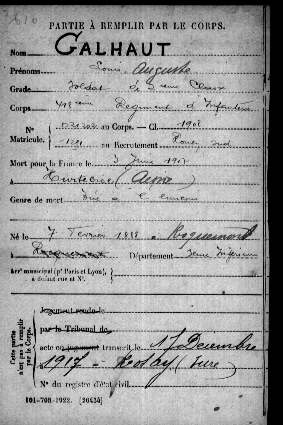 PARTIE À REMPLIR PAR LE CORPS.
Nom GALHAUT
Prénoms Louis Auguste
Grade Soldat de 2ème Classe
Corps Régiment d'Infanterie
N° au Corps. — Cl. 1908
Matricule. au Recrutement Rouen Sud
Mort pour la France le 3 Juin 1917
à (Aisne)
Genre de mort Tué à l'ennemi
Né le 7 Février 1888 à Roquemont
à Département Seine Inférieure
Arr' municipal (pr Paris et Lyon),
à défaut rue et N°.
Cette partie n'est pas à remplir par le Corps.
Jugement rendu le
par le Tribunal de
acte ou jugement transcrit le 17 Décembre
1917 à (Eure)
N° du registre d'état civil
101-708-1922. [26434]